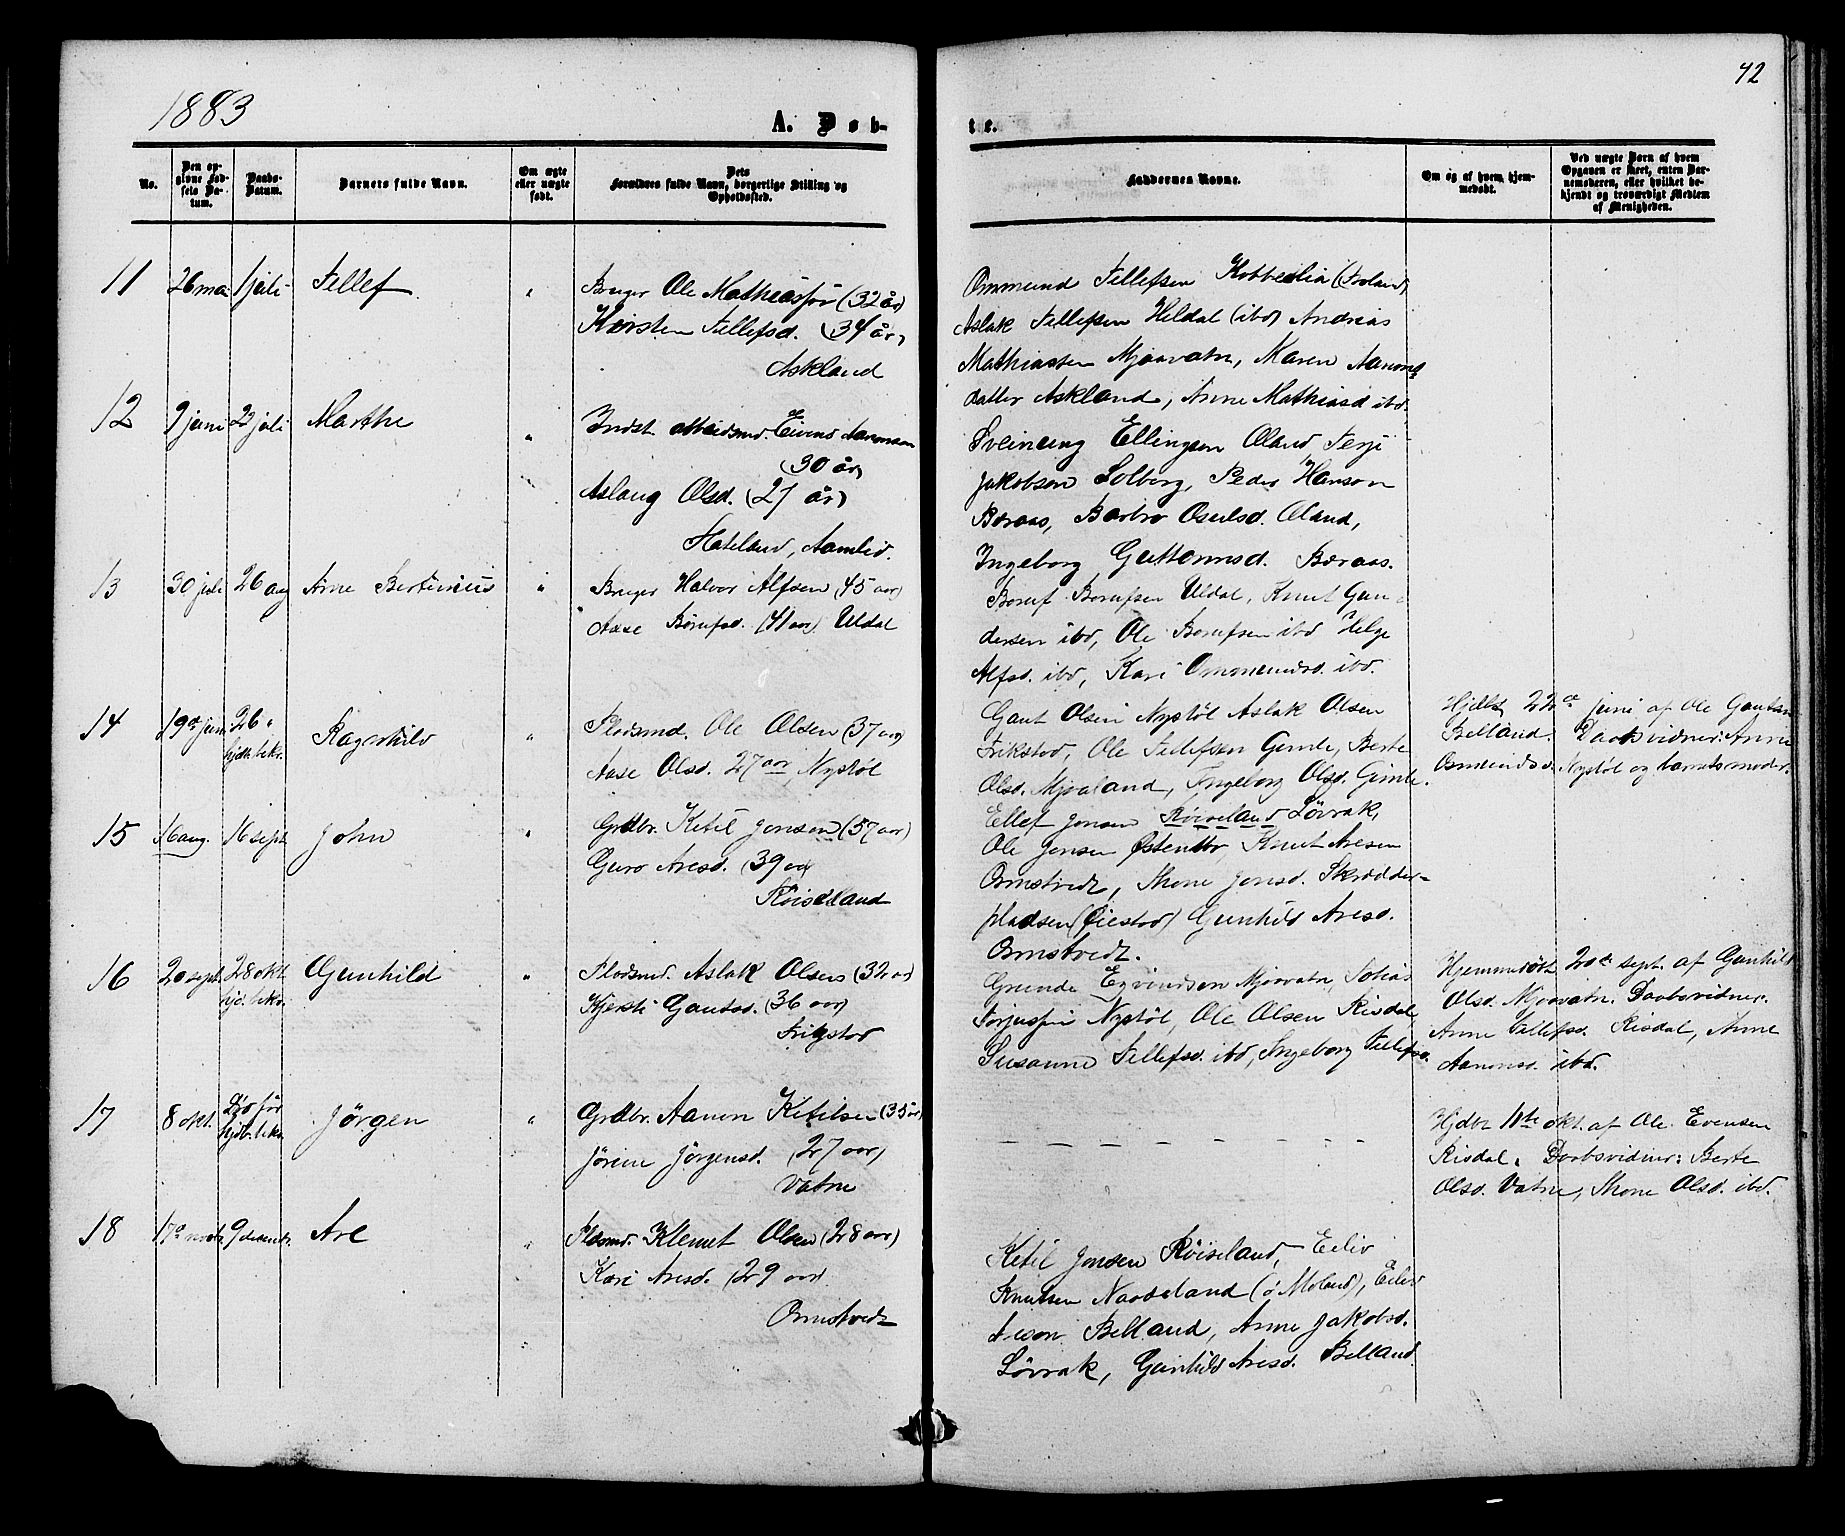 1883
A. Døb-
te.
42
No.
Den op-
givne Fød-
sels Da-
tum.
Daabs-
Datum.
Barnets fulde Navn.
Om ægte
eller uægte
født.
Dets
Forældres fulde Navn, borgerlige Stilling og
Opholdssted.
Faddernes Navne.
Om og af hvem hjem-
medøbt.
Ved uægte Børn af hvem
Opgaven er skeet, enten Bar-
nemoderen, eller hvilket be-
kjendt og troværdigt Medlem
af Menigheden.
11 26 mai 1 juli Tellef "
Bruger Ole Mathiassøn (32 år)
Kirsten Tellefsd. (34 år)
Askland
Ommund Tellefsen Kobberlia (Froland)
Aslak Tellefsen Heldal (ibd) Andreas
Mathiassen Mjaavatn, Karen Aanons
datter Askland, Anne Mathiasd ibd.
12 9 juni 22 juli Marthe "
Indst. arbeidsmd. Eivind Aanonsen
(30 år)
Aslaug Olsd. (27 år)
Hateland, Aamlid.
Sveinung Ellingsen Øland Terje
Jakobsen Solberg, Peder Hansen
Beraas, Barbro Osulsd. Øland,
Ingeborg Guttormsd. Beraas.
13 30 juli 26 aug Arne Bertinius "
Bruger Halvor Alfsen (45 aar)
Aase Børufsd. (41 aar) Uldal
Boruf Borufsen Uldal, Knut Gun-
dersen ibd, Ole Borufsen ibd Helge
Alfsd. ibd, Kari Ommundsd. ibd.
14 19de juni 26 " hjdb. bekr. Ragnhild "
Pladsmd. Ole Olsen (37 aar)
Aase Olsd. 27 aar Nystøl
Gaut Olsen Nystøl Aslak Olsen
Frikstod, Ole Tellefsen Gimle, Berte
Olsd. Mjovaland, Ingeborg Olsd. Gimle.
Hjdbt 22de juni af Ole Gautsen
Belland. Daabsvidner: Anne
Osmundsd. Nystøl og barnets moder.
15 16 aug. 16 sept John "
Grdbr. Ketil Jensen (57 aar)
Guro Aresd. (39 aar)
Røiseland
Ellef Jensen Røiseland Løvrak,
Ole Jensen Østentbo, Knut Aresen
Ormstvedt, Thone Jonsd. Skrædder-
pladsen (Øiestad) Gunhild Aresd.
Ormstvedt.
16 20 sept. 28 okt. hjd. bekr. Gunhild "
Pladsmd. Aslak Olsen (32 aar)
Kjersti Gautsd. (36 aar)
Frigstod
Grunde Egvindsen Mjaavatn, Tobias
Torjussen Nystøl, Ole Olsen Risdal
Susanne Tellefsd. ibd, Ingeborg Tellefsd.
Hjemmedøbt 20de sept. af Gunhild
Olsd. Mjaavatn. Daabsvidner.
Anne Tellefsd. Risdal, Anne
Aanonsd. ibd.
17 8 okt. Død før hjdb. bekr. Jørgen "
Grdbr. Aanon Ketilsen (35 år)
Jørine Jørgensd. (27 aar)
Vatne
Hjdbt 11te okt. af Ole Evensen
Risdal. Daabsvidner: Berte
Olsd. Vatne, Thone Olsd. ibd.
18 17de novb. 9 decembr. Are "
Pladsmd. Klemet Olsen (28 aar)
Kari Aresd. (29 aar)
Ormstvedt
Ketil Jensen Røiseland, Eiliv
Knutsen Nordeland (i Moland), Eiliv
Aresen Belland, Anne Jakobsd.
Løvrak, Gunhild Aresd. Belland.